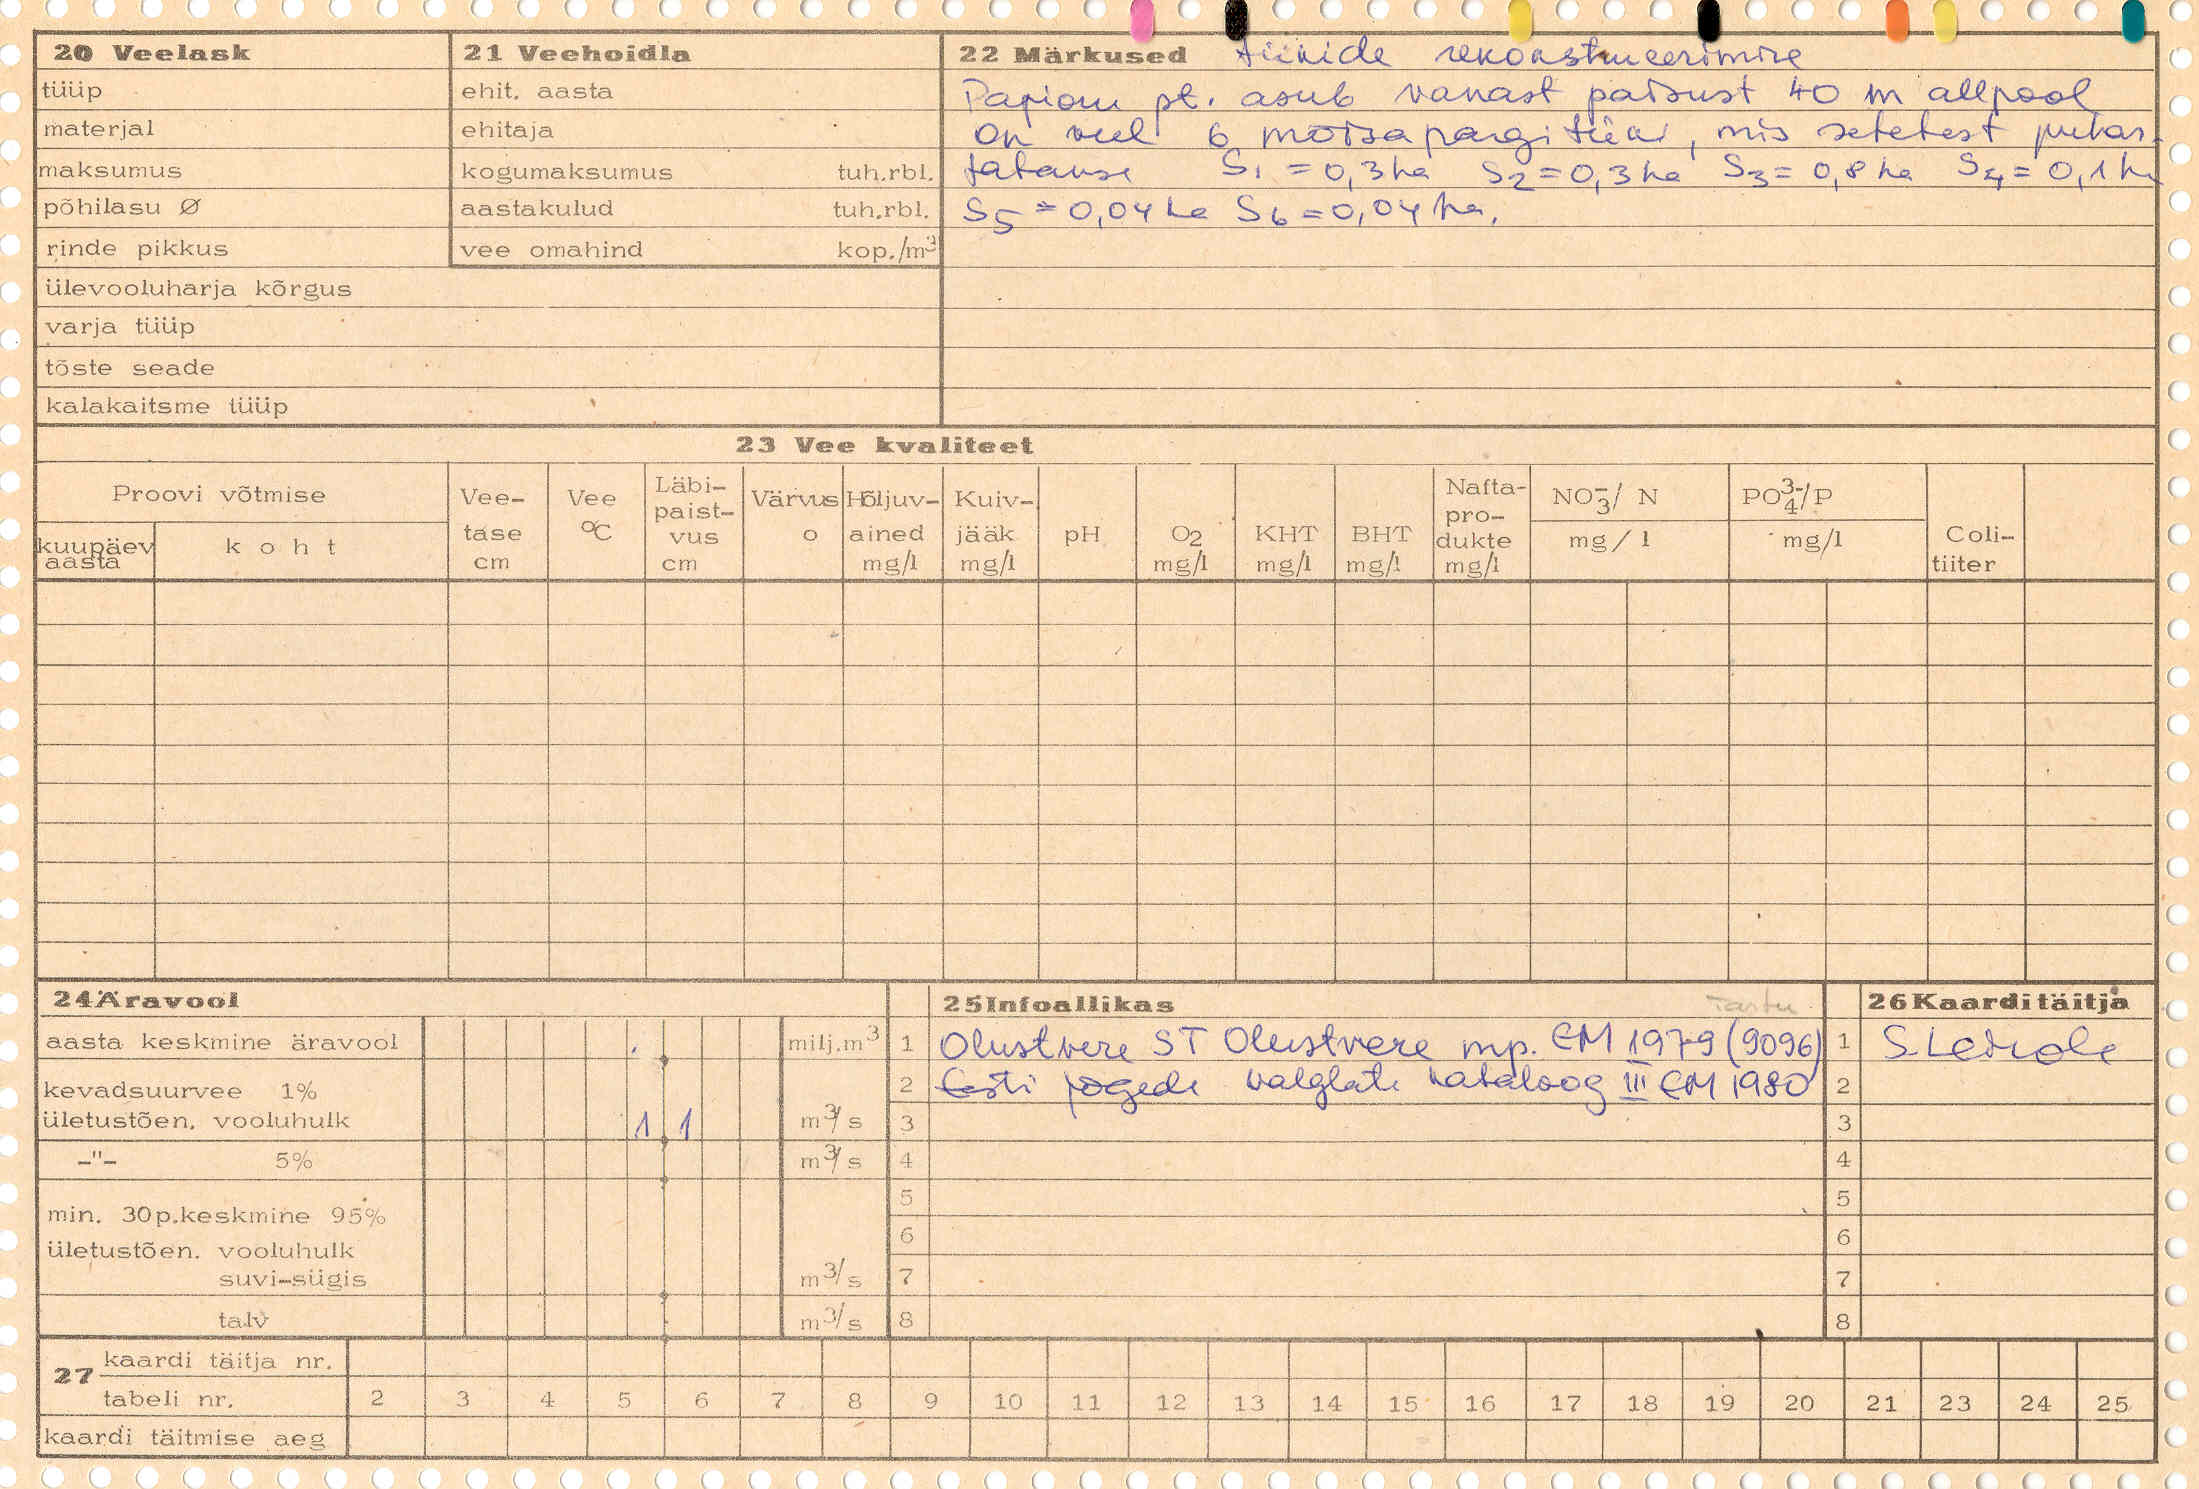 20 Veelask
tüüp
materjal
maksumus
põhilasu Ø
rinde pikkus
ülevooluharja kõrgus
varja tüüp
tõste seade
kalakaitsme tüüp
21 Veehoidla
ehit. aasta
ehitaja
kogumaksumus tuh.rbl.
aastakulud tuh.rbl.
vee omahind kop./m³
22 Märkused tiikide rekonstrueerimise
pt. asub vanast paisust 40 m allpool
on veel 6 mõisapargi tiiki, mis setetest puhas-
tatakse S₁ = 0,3 ha S₂ = 0,3 ha S₃ = 0,8 ha S₄ = 0,1 ha
S₅ = 0,04 ha S₆ = 0,04 ha.
23 Vee kvaliteet
Proovi võtmise
kuupäev aasta
koht
Vee-tase cm
Vee °C
Läbi-paist-vus cm
Värvus o
Hõljuv-ained mg/l
Kuiv-jääk mg/l
pH
O₂ mg/l
KHT mg/l
BHT mg/l
Nafta-pro-dukte mg/l
NO₃⁻/ N mg/l
PO₄³⁻/P mg/l
Coli-tiiter
24 Äravool
aasta keskmine äravool milj.m³
kevadsuurvee 1%
ületustõen. vooluhulk 1 1 m³/s
-"- 5% m³/s
min. 30p.keskmine 95%
ületustõen. vooluhulk
suvi-sügis m³/s
talv m³/s
25 Infoallikas Tartu
1 Olustvere ST Olustvere mp. EM 1979 (9096)
2 Eesti jõgede valglate kataloog III EM 1980
3
4
5
6
7
8
26 Kaardi täitja
1
2
3
4
5
6
7
8
27 kaardi täitja nr.
tabeli nr. 2 3 4 5 6 7 8 9 10 11 12 13 14 15 16 17 18 19 20 21 23 24 25
kaardi täitmise aeg